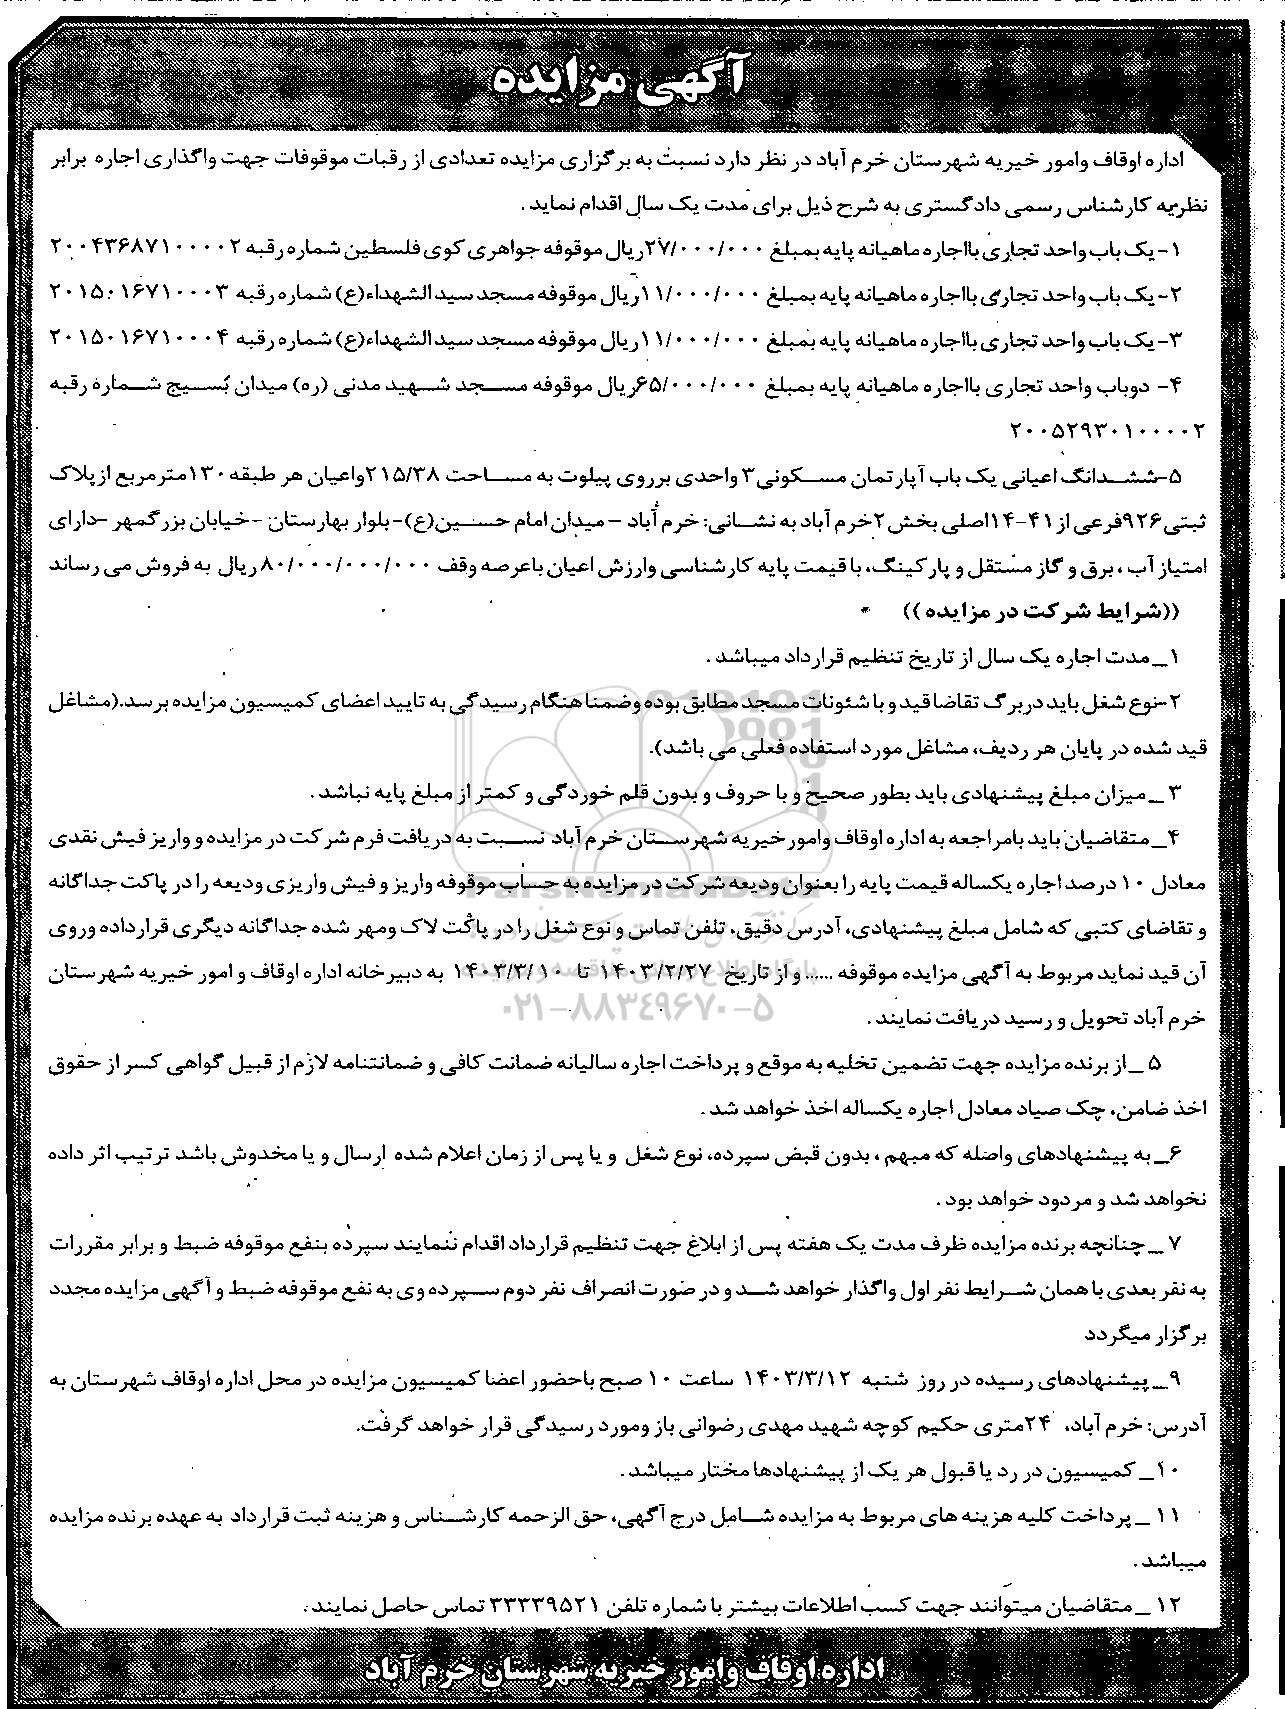 آگهی مزایده
اداره اوقاف وامور خیریه شهرستان خرم آباد در نظر دارد نسبت به برگزاری مزایده تعدادی از رقبات موقوفات جهت واگذاری اجاره برابر
نظریه کارشناس رسمی دادگستری به شرح ذیل برای مدت یک سال اقدام نماید .
۱- یک باب واحد تجاری بااجاره ماهیانه پایه بمبلغ ۲۷/۰۰۰/۰۰۰ریال موقوفه جواهری کوی فلسطین شماره رقبه ۲۰۰۴۳۶۸۷۱۰۰۰۰۲
۲- یک باب واحد تجاری بااجاره ماهیانه پایه بمبلغ ۱۱/۰۰۰/۰۰۰ریال موقوفه مسجد سید الشهداء(ع) شماره رقبه ۲۰۱۵۰۱۶۷۱۰۰۰۳
۳- یک باب واحد تجاری بااجاره ماهیانه پایه بمبلغ ۱۱/۰۰۰/۰۰۰ریال موقوفه مسجد سید الشهداء(ع) شماره رقبه ۲۰۱۵۰۱۶۷۱۰۰۰۴
۴- دوباب واحد تجاری بااجاره ماهیانه پایه بمبلغ ۶۵/۰۰۰/۰۰۰ریال موقوفه مسجد شهید مدنی (ره) میدان بسیج شماره رقبه
۲۰۰۵۲۹۳۰۱۰۰۰۰۲
۵-ششدانگ اعیانی یک باب آپارتمان مسکونی۳ واحدی برروی پیلوت به مساحت ۲۱۵/۳۸واعیان هر طبقه ۱۳۰مترمربع ازپلاک
ثبتی۹۲۶فرعی از ۴۱-۱۴اصلی بخش ۲خرم آباد به نشانی: خرم آباد -میدان امام حسین(ع)-بلوار بهارستان -خیابان بزرگمهر -دارای
امتیاز آب ، برق و گاز مستقل و پارکینگ، با قیمت پایه کارشناسی وارزش اعیان باعرصه وقف ۸۰/۰۰۰/۰۰۰/۰۰۰ ریال به فروش می رساند
((شرایط شرکت در مزایده ))
۱_مدت اجاره یک سال از تاریخ تنظیم قرارداد میباشد .
۲-نوع شغل باید دربرگ تقاضا قید و با شئونات مسجد مطابق بوده وضمنا هنگام رسیدگی به تایید اعضای کمیسیون مزایده برسد.(مشاغل
قید شده در پایان هر ردیف، مشاغل مورد استفاده فعلی می باشد).
۳_میزان مبلغ پیشنهادی باید بطور صحیح و با حروف و بدون قلم خوردگی و کمتر از مبلغ پایه نباشد .
۴_متقاضیان باید بامراجعه به اداره اوقاف وامور خیریه شهرستان خرم آباد نسبت به دریافت فرم شرکت در مزایده و واریز فیش نقدی
معادل ۱۰ درصد اجاره یکساله قیمت پایه را بعنوان ودیعه شرکت در مزایده به حساب موقوفه واریز و فیش واریزی ودیعه را در پاکت جداگانه
و تقاضای کتبی که شامل مبلغ پیشنهادی، آدرس دقیق، تلفن تماس و نوع شغل را در پاکت لاک ومهر شده جداگانه دیگری قرارداده وروی
آن قید نماید مربوط به آگهی مزایده موقوفه ..... و از تاریخ ۱۴۰۳/۲/۲۷ تا ۱۴۰۳/۳/۱۰ به دبیرخانه اداره اوقاف و امور خیریه شهرستان
خرم آباد تحویل و رسید دریافت نمایند .
۵_از برنده مزایده جهت تضمین تخلیه به موقع و پرداخت اجاره سالیانه ضمانت کافی و ضمانتنامه لازم از قبیل گواهی کسر از حقوق
اخذ ضامن، چک صیاد معادل اجاره یکساله اخذ خواهد شد .
۶_به پیشنهادهای واصله که مبهم ، بدون قبض سپرده، نوع شغل و یا پس از زمان اعلام شده ارسال و یا مخدوش باشد ترتیب اثر داده
نخواهد شد و مردود خواهد بود .
۷_چنانچه برنده مزایده ظرف مدت یک هفته پس از ابلاغ جهت تنظیم قرارداد اقدام ننمایند سپرده بنفع موقوفه ضبط و برابر مقررات
به نفر بعدی با همان شرایط نفر اول واگذار خواهد شد و در صورت انصراف نفر دوم سپرده وی به نفع موقوفه ضبط و آگهی مزایده مجدد
برگزار میگردد
۹_پیشنهادهای رسیده در روز شنبه ۱۴۰۳/۳/۱۲ ساعت ۱۰ صبح باحضور اعضا کمیسیون مزایده در محل اداره اوقاف شهرستان به
آدرس: خرم آباد، ۲۴متری حکیم کوچه شهید مهدی رضوانی باز ومورد رسیدگی قرار خواهد گرفت.
۱۰_کمیسیون در رد یا قبول هر یک از پیشنهادها مختار میباشد .
۱۱_پرداخت کلیه هزینه های مربوط به مزایده شامل درج آگهی، حق الزحمه کارشناس و هزینه ثبت قرارداد به عهده برنده مزایده
میباشد .
۱۲_متقاضیان میتوانند جهت کسب اطلاعات بیشتر با شماره تلفن ۳۳۳۳۹۵۲۱ تماس حاصل نمایند.
اداره اوقاف وامور خیریه شهرستان خرم آباد
ParsNamadData
۰۲۱-۸۸۳۴۹۶۷۰-۵